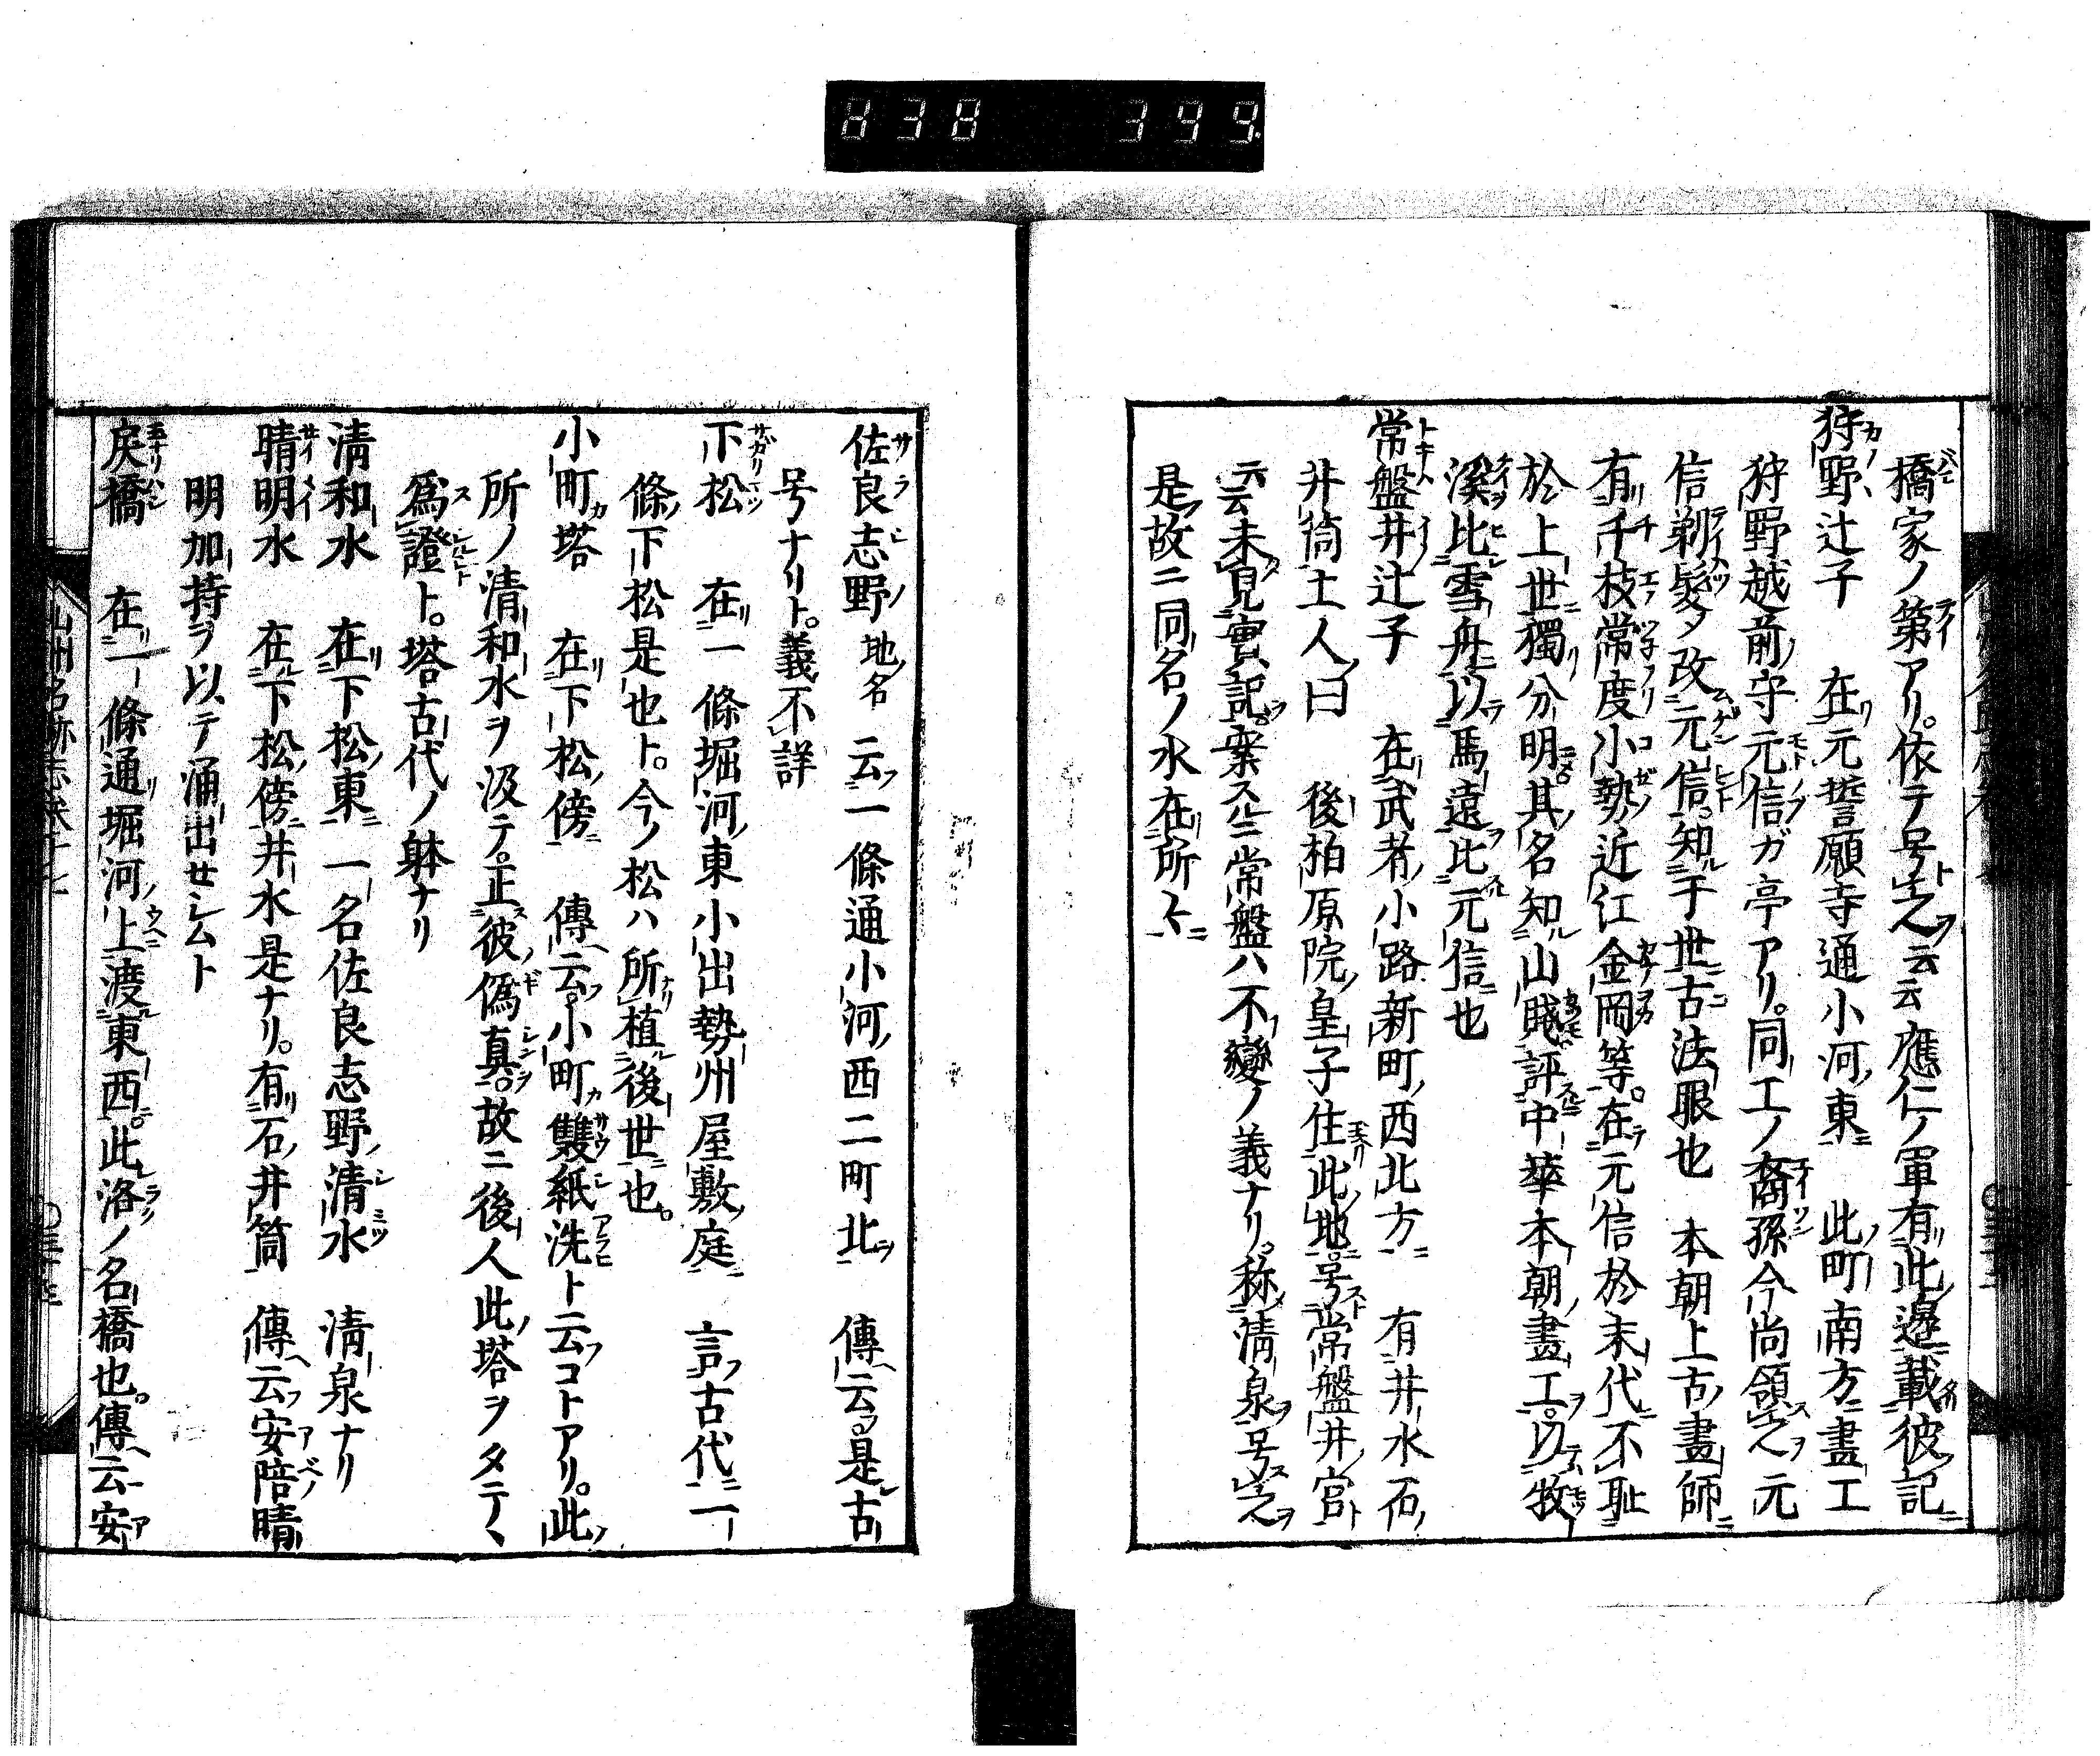 橋家ノ第アリ。依テ号之云云應仁ノ軍有此邉載彼記
狩野辻子 在元誓願寺通小河東 此町南方畫工
狩野越前守元信ガ亭アリ。同工ノ裔孫今尚領之元
信剃髪〆改元信。知于世古法眼也 本朝上古畫師
有千枝常度小勢近江金岡等。在元信於末代不耻
於上世獨分明其名知山賤評中華本朝畫工。以牧
溪比雪舟以馬遠比元信也
常盤井辻子 在武者小路新町西北方 有井水石
井筒土人曰 後柏原院皇子住此地。号常盤井宮
云云未見實記。案スルニ常盤ハ不變ノ義ナリ。称清泉号之
是故ニ同名ノ水在所々
佐良志野 地名 云一條通小河西二町北 傳云是古
号ナリト。義不詳
下松 在一條堀河東小出勢州屋敷庭 言古代一
條下松是也ト。今ノ松ハ所植後世也。
小町塔 在下松傍 傳云。小町雙紙洗ト云コトアリ。此
所ノ清和水ヲ汲テ。正彼偽真。故ニ後人此塔ヲタテヽ
爲證ト。塔古代ノ躰ナリ
清和水 在下松東 一名佐良志野清水 清泉ナリ
晴明水 在下松傍井水是ナリ。有石井筒 傳云安陪晴
明加持ヲ以テ涌出セシムト
戻橋 在一條通堀河上渡東西。此洛ノ名橋也。傳云安
山州名跡志卷十七